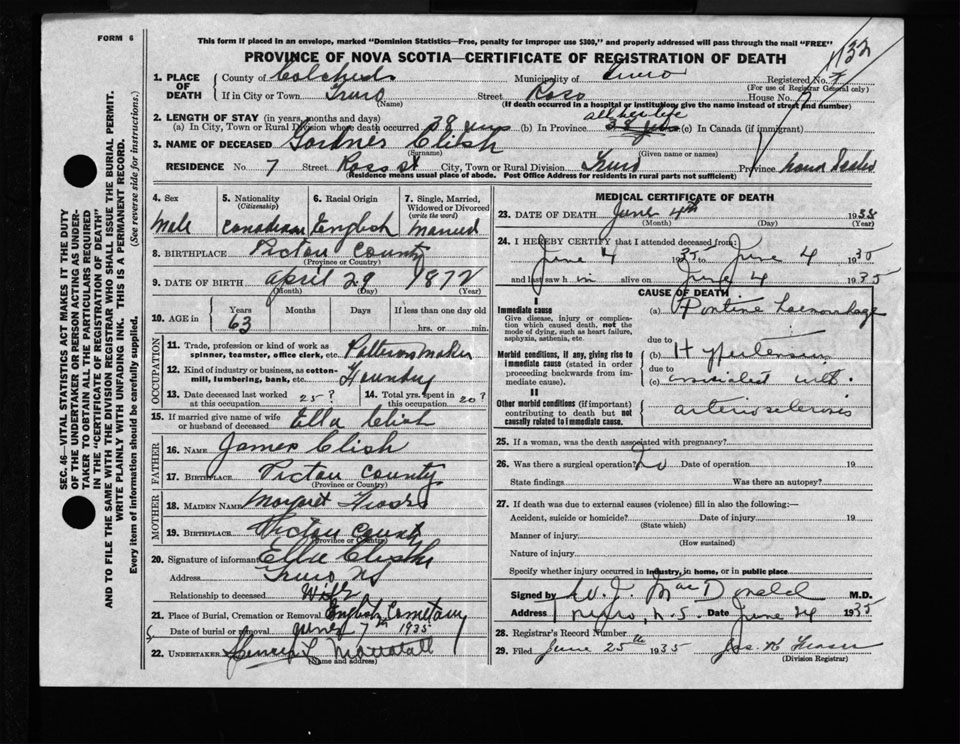 FORM 6
This form if placed in an envelope, marked "Dominion Statistics—Free, penalty for improper use $300," and properly addressed will pass through the mail "FREE"
PROVINCE OF NOVA SCOTIA—CERTIFICATE OF REGISTRATION OF DEATH
132
1. PLACE OF DEATH County of Colchester Municipality of Truro Registered No.
(For use of Registrar General only)
If in City or Town Truro Street Ross House No. 7
(Name) (If death occurred in a hospital or institution, give the name instead of street and number)
2. LENGTH OF STAY (in years, months and days) all his life
(a) In City, Town or Rural Division where death occurred 38 yrs (b) In Province 38 yrs (c) In Canada (if immigrant)
3. NAME OF DECEASED Gordner Clish
(Surname) (Given name or names)
RESIDENCE No. 7 Street Ross st City, Town or Rural Division Truro Province Nova Scotia
(Residence means usual place of abode. Post Office Address for residents in rural parts not sufficient)
4. Sex 5. Nationality (Citizenship) 6. Racial Origin 7. Single, Married, Widowed or Divorced (write the word)
Male Canadian English Married
8. BIRTHPLACE Pictou County
(Province or Country)
9. DATE OF BIRTH April 29 1872
(Month) (Day) (Year)
10. AGE in Years Months Days If less than one day old
63 hrs. or min.
OCCUPATION
11. Trade, profession or kind of work as spinner, teamster, office clerk, etc. Patternmaker
12. Kind of industry or business, as cotton-mill, lumbering, bank, etc. Foundry
13. Date deceased last worked at this occupation 25? 14. Total yrs. spent in this occupation 20?
15. If married give name of wife or husband of deceased Ella Clish
FATHER
16. Name James Clish
17. Birthplace Pictou County
(Province or Country)
MOTHER
18. Maiden Name Margaret
19. Birthplace Pictou County
(Province or Country)
20. Signature of informant Ella Clish
Address Truro NS
Relationship to deceased Wife
21. Place of Burial, Cremation or Removal English Cemetary
Date of burial or removal June 7th 1935
22. UNDERTAKER
(Name and address)
MEDICAL CERTIFICATE OF DEATH
23. DATE OF DEATH June 4th 1935
(Month) (Day) (Year)
24. I HEREBY CERTIFY that I attended deceased from:
June 4 1935 to June 4 1935
and last saw him alive on June 4 1935
CAUSE OF DEATH
I
Immediate cause
Give disease, injury or complication which caused death, not the mode of dying, such as heart failure, asphyxia, asthenia, etc.
(a) Pontine haemorrhage
due to
Morbid conditions, if any, giving rise to immediate cause (stated in order proceeding backwards from immediate cause).
(b) Hypertension
due to
(c) associated with
II
Other morbid conditions (if important) contributing to death but not causally related to immediate cause.
arteriosclerosis
25. If a woman, was the death associated with pregnancy?
26. Was there a surgical operation? No Date of operation 19
State findings Was there an autopsy?
27. If death was due to external causes (violence) fill in also the following:—
Accident, suicide or homicide? Date of injury 19
(State which)
Manner of injury
(How sustained)
Nature of injury
Specify whether injury occurred in industry, in home, or in public place
Signed by W. J. MacDonald M.D.
Address Truro, N.S. Date June 24 1935
28. Registrar's Record Number
29. Filed June 25th 1935 Jas. K Fraser
(Division Registrar)
SEC. 46—VITAL STATISTICS ACT MAKES IT THE DUTY
OF THE UNDERTAKER OR PERSON ACTING AS UNDER-
TAKER TO OBTAIN ALL THE PARTICULARS REQUIRED
IN THE "CERTIFICATE OF REGISTRATION OF DEATH"
AND TO FILE THE SAME WITH THE DIVISION REGISTRAR WHO SHALL ISSUE THE BURIAL PERMIT.
WRITE PLAINLY WITH UNFADING INK. THIS IS A PERMANENT RECORD.
Every item of information should be carefully supplied. (See reverse side for instructions.)